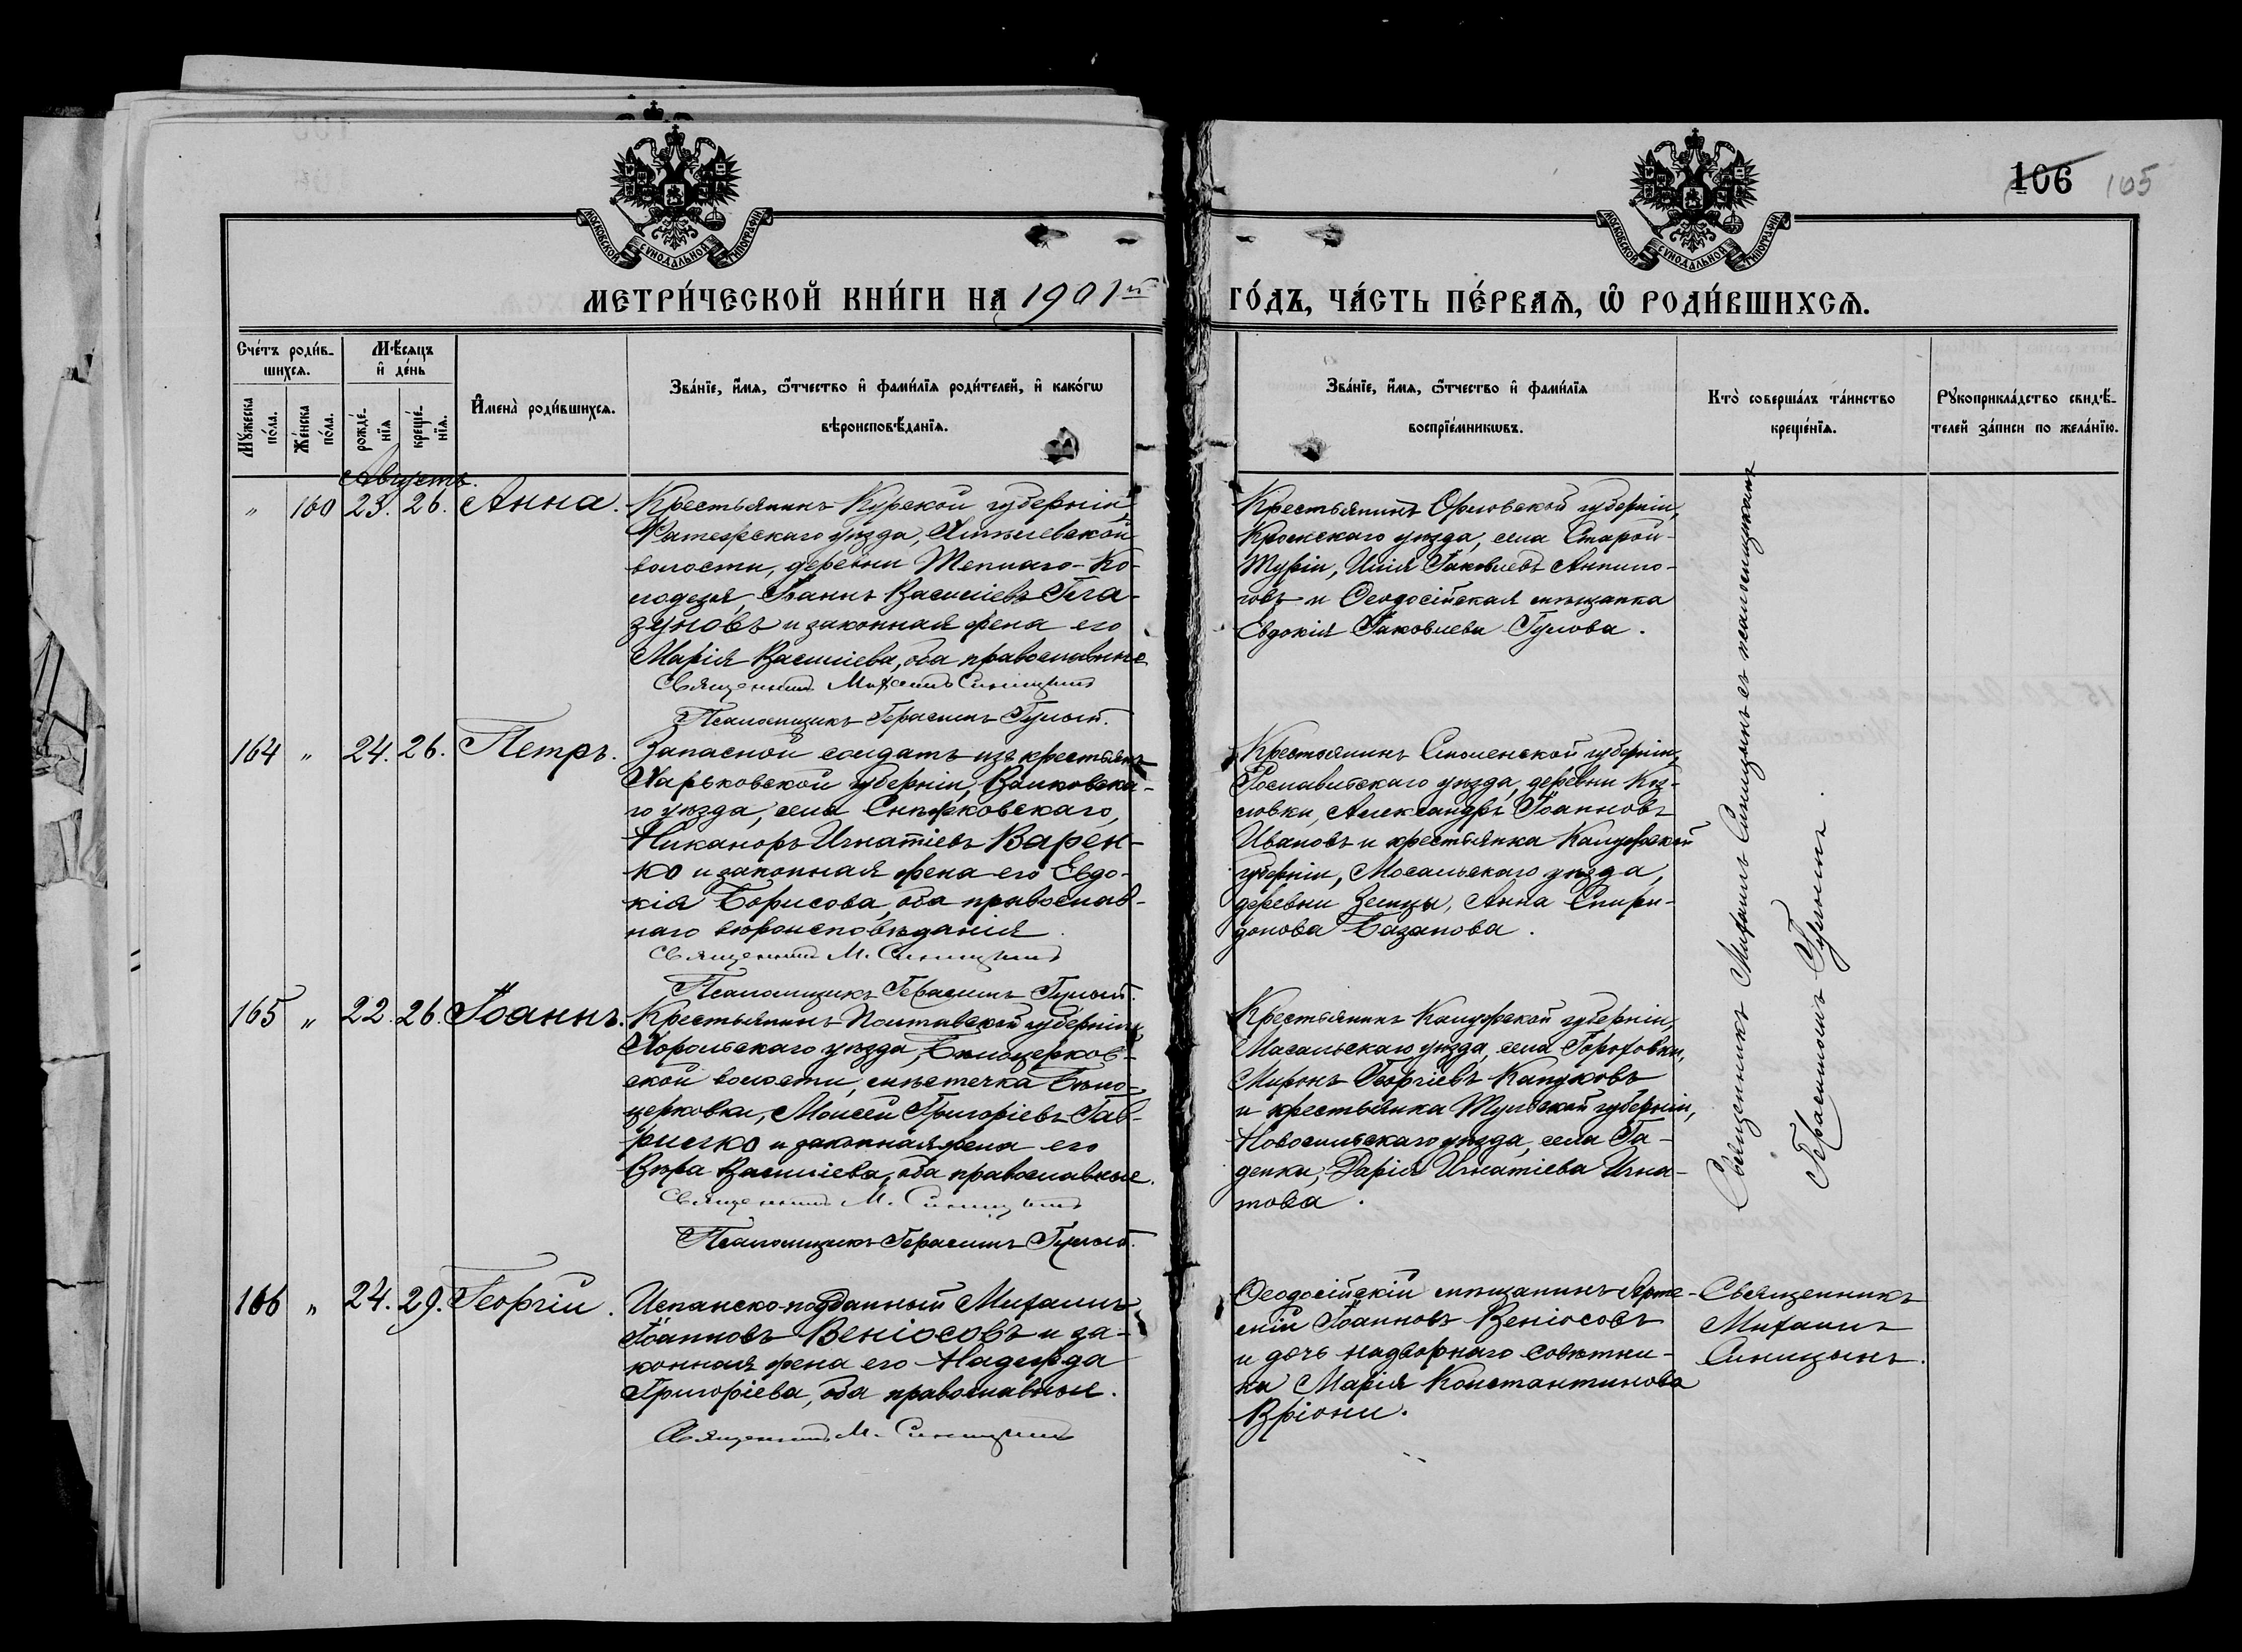 106 105
МОСКОВСКОЙ СѴНОДАЛЬНОЙ ТИПОГРАФІИ
МОСКОВСКОЙ СѴНОДАЛЬНОЙ ТИПОГРАФІИ
МЕТРИ́ЧЕСКОЙ КНИ́ГИ НА 1901й ГО́ДЪ, ЧА́СТЬ ПЕ́РВАЯ, Ѡ РОДИ́ВШИХСЯ.
Сче́тъ роди́в-
шихся.
Му́жеска по́ла.
Же́нска по́ла.
Мѣ́сяцъ
и де́нь
рожде́-
нїя
креще́-
нїя.
Имена̀ роди́вшихся.
Зва́нїе, и́мя, ѻ́тчество и фами́лїя роди́телей, и како́гѡ
вѣроисповѣ́данїя.
Зва́нїе, и́мя, ѻ́тчество и фами́лїя
воспрїе́мникѡвъ.
Кто̀ соверша́лъ та́инство
креще́нїя.
Рꙋкоприкла́дство свидѣ́-
телей за́писи по жела́нїю.
Августъ.
" 160 23. 26. Анна.
Крестьянинъ Курской губерніи,
Фатежскаго уѣзда,
волости, деревни Теплаго-Ко-
лодезя, Іоаннъ Василіевъ Гла-
зуновъ и законная жена его
Марія Василіева, оба православные
Священникъ Михаилъ Синицынъ
Псаломщикъ Герасимъ Гулый.
Крестьянинъ Орловской губерніи,
Кромскаго уѣзда, села Старой-
Турьи, Илія Іаковлевъ Анпило-
говъ и Ѳеодосійская мѣщанка
Евдокія Іаковлева Гулова.
164 " 24. 26. Петръ.
Запасной солдатъ изъ крестьянъ
Харьковской губерніи, Валковска-
го уѣзда, села Снѣжковскаго,
Никаноръ Игнатіевъ Варен-
ко и законная жена его Евдо-
кія Борисова, оба православ-
наго вѣроисповѣданія.
Священникъ М. Синицынъ
Псаломщикъ Герасимъ Гулый.
Крестьянинъ Смоленской губерніи,
Рославльскаго уѣзда, деревни Коз-
ловки, Александръ Іоанновъ
Ивановъ и крестьянка Калужской
губерніи, Мосальскаго уѣзда,
деревни Земцы, Анна Спири-
донова Базанова.
165 " 22. 26. Іоаннъ.
Крестьянинъ Полтавской губерніи,
Хорольскаго уѣзда, Бѣлоцерков-
ской волости, мѣстечка Бѣло-
церковки, Моисей Григоріевъ Гав-
рилко и законная жена его
Вѣра Василіева, оба православные.
Священникъ М. Синицынъ
Псаломщикъ Герасимъ Гулый.
Крестьянинъ Калужской губерніи,
Масальскаго уѣзда, села Гороховки,
Миронъ Георгіевъ Капуковъ
и крестьянка Тульской губерніи,
Новосильскаго уѣзда, села Га-
денки, Дарія Игнатіева Игна-
това.
Священникъ Михаилъ Синицынъ съ псаломщикомъ
Герасимомъ Гулымъ.
166 " 24. 29. Георгій.
Испанско-подданный Михаилъ
Іоанновъ Веніосовъ и за-
конная жена его Надежда
Григоріева, оба православные.
Священникъ М. Синицынъ
Ѳеодосійскій мѣщанинъ Арте-
мій Іоанновъ Веніосовъ
и дочь надворнаго совѣтни-
ка Марія Константинова
Вріони.
Священникъ
Михаилъ
Синицынъ.